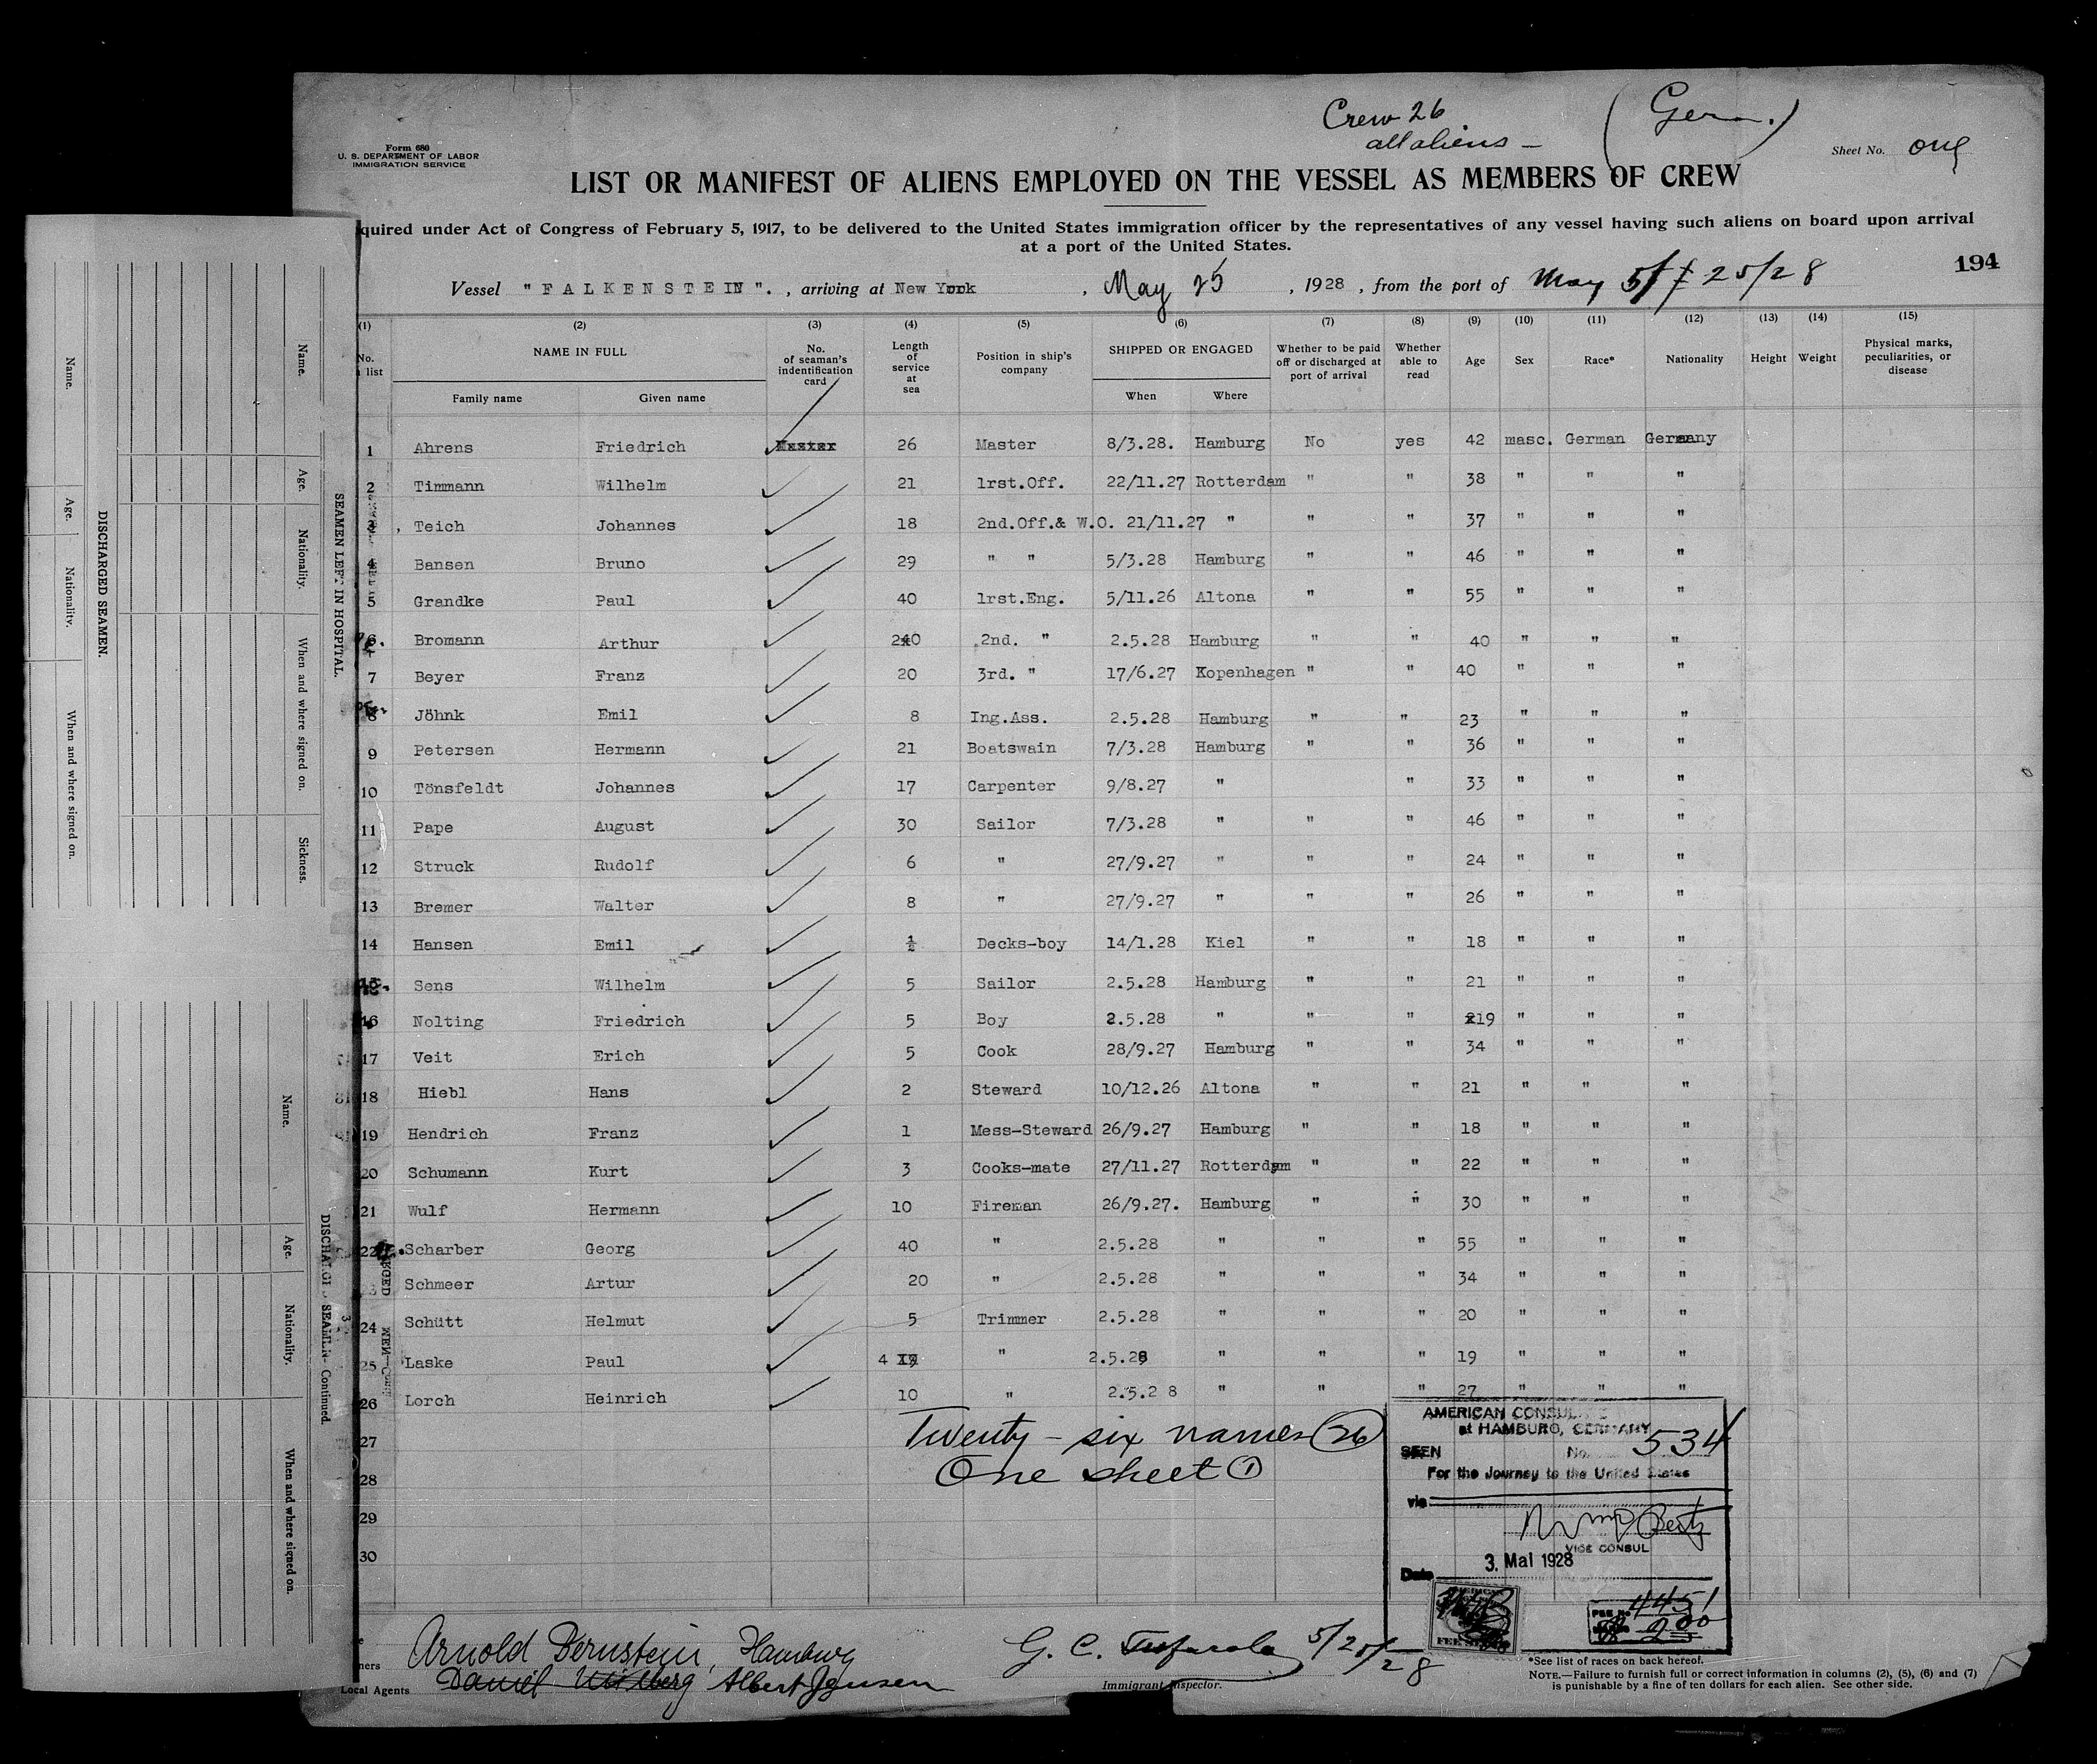 Crew 26
all aliens —
(Ger.)
Form 680
U. S. DEPARTMENT OF LABOR
IMMIGRATION SERVICE
Sheet No. one
LIST OR MANIFEST OF ALIENS EMPLOYED ON THE VESSEL AS MEMBERS OF CREW
quired under Act of Congress of February 5, 1917, to be delivered to the United States immigration officer by the representatives of any vessel having such aliens on board upon arrival
at a port of the United States.
194
Vessel "FALKENSTEIN". , arriving at New York , May 25 , 1928 , from the port of May 5/25/28
(1) (2) (3) (4) (5) (6) (7) (8) (9) (10) (11) (12) (13) (14) (15)
No. list NAME IN FULL Family name Given name No. of seaman's indentification card Length of service at sea Position in ship's company SHIPPED OR ENGAGED When Where Whether to be paid off or discharged at port of arrival Whether able to read Age Sex Race* Nationality Height Weight Physical marks, peculiarities, or disease
1 Ahrens Friedrich Master 26 Master 8/3.28. Hamburg No yes 42 masc. German Germany
2 Timmann Wilhelm 21 1rst.Off. 22/11.27 Rotterdam " " 38 " " "
3 Teich Johannes 18 2nd.Off.& W.O. 21/11.27 " " " 37 " " "
4 Bansen Bruno 29 " " 5/3.28 Hamburg " " 46 " " "
5 Grandke Paul 40 1rst.Eng. 5/11.26 Altona " " 55 " " "
6 Bromann Arthur 20 2nd. " 2.5.28 Hamburg " " 40 " " "
7 Beyer Franz 20 3rd. " 17/6.27 Kopenhagen " " 40 " " "
8 Jöhnk Emil 8 Ing.Ass. 2.5.28 Hamburg " " 23 " " "
9 Petersen Hermann 21 Boatswain 7/3.28 Hamburg " " 36 " " "
10 Tönsfeldt Johannes 17 Carpenter 9/8.27 " " 33 " " "
11 Pape August 30 Sailor 7/3.28 " " " 46 " " "
12 Struck Rudolf 6 " 27/9.27 " " " 24 " " "
13 Bremer Walter 8 " 27/9.27 " " " 26 " " "
14 Hansen Emil ½ Decks-boy 14/1.28 Kiel " " 18 " " "
15 Sens Wilhelm 5 Sailor 2.5.28 Hamburg " " 21 " " "
16 Nolting Friedrich 5 Boy 2.5.28 " " " 19 " " "
17 Veit Erich 5 Cook 28/9.27 Hamburg " " 34 " " "
18 Hiebl Hans 2 Steward 10/12.26 Altona " " 21 " " "
19 Hendrich Franz 1 Mess-Steward 26/9.27 Hamburg " " 18 " " "
20 Schumann Kurt 3 Cooks-mate 27/11.27 Rotterdam " " 22 " " "
21 Wulf Hermann 10 Fireman 26/9.27. Hamburg " " 30 " " "
22 Scharber Georg 40 " 2.5.28 " " " 55 " " "
Schmeer Artur 20 " 2.5.28 " " " 34 " " "
24 Schütt Helmut 5 Trimmer 2.5.28 " " " 20 " " "
25 Laske Paul 4 " 2.5.28 " " " 19 " " "
26 Lorch Heinrich 10 " 2.5.2 8 " " " 27 " " "
27
28
29
30
Twenty-six names (26)
One sheet (1)
AMERICAN CONSUL
at HAMBURG, GERMANY
SEEN No. 534
For the Journey to the United States
via
VICE CONSUL
Date 3. Mai 1928
FEE No. 4451
$ 2.00
ners Arnold Bernstein, Hamburg
Local Agents Daniel Albert Jensen
G. C. 5/25/28
Immigrant Inspector.
*See list of races on back hereof.
NOTE.—Failure to furnish full or correct information in columns (2), (5), (6) and (7)
is punishable by a fine of ten dollars for each alien. See other side.
DISCHARGED SEAMEN.
Name. Age. Nationality. When and where signed on.
SEAMEN LEFT IN HOSPITAL.
Name. Age. Nationality. When and where signed on. Sickness.
DISCHARGED SEAMEN—Continued.
Name. Age. Nationality. When and where signed on.